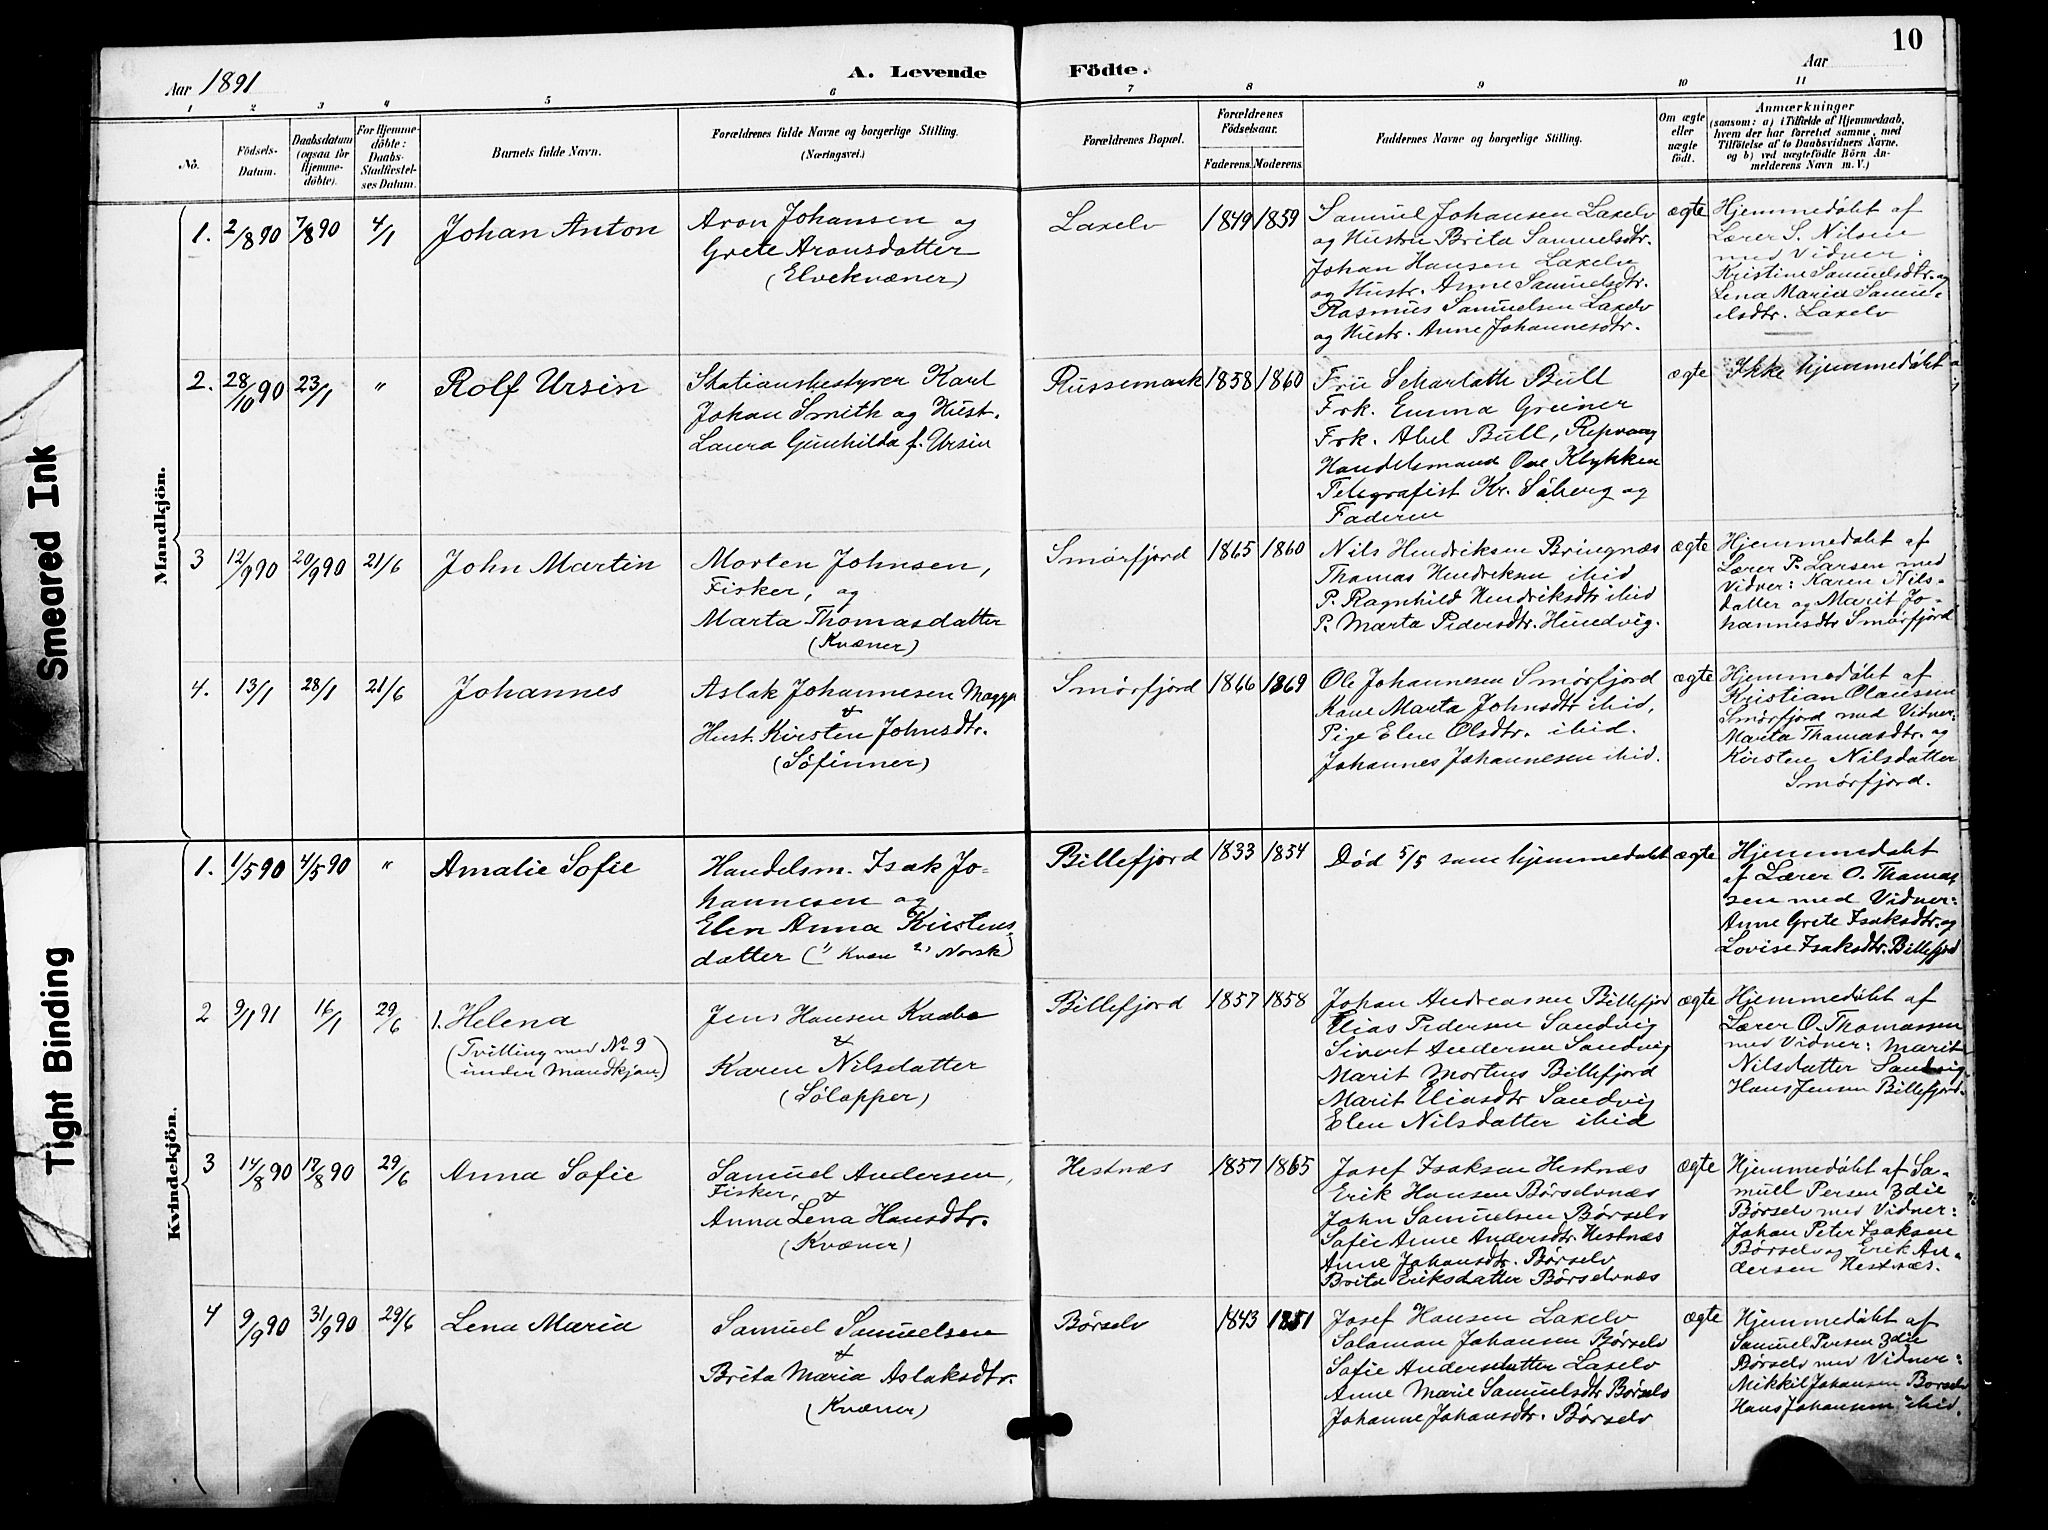 10
Aar 1891
A. Levende Födte.
Aar
1 2 3 4 5 6 7 8 9 10 11
No.
Födsels-Datum.
Daabsdatum (ogsaa for Hjemme-döbte).
For Hjemme-döbte: Daabs-Stadfæstel-ses Datum.
Barnets fulde Navn.
Forældrenes fulde Navne og borgerlige Stilling.
(Næringsvei.)
Forældrenes Bopæl.
Forældrenes Födselsaar.
Faderens. Moderens.
Faddernes Navne og borgerlige Stilling.
Om ægte eller uægte født.
Anmærkninger
(saasom: a) i Tilfælde af Hjemmedaab,
hvem der har forrettet samme, med
Tilföielse af to Daabsvidners Navne,
og b) ved uægtefödte Börn An-
melderens Navn m. V.)
Mandkjön.
1. 2/8 90 7/8 90 4/1 Johan Anton
Aron Johansen og
Grete Aronsdatter
(Elvekvæner)
Laxelv 1849 1859
Samuel Johansen Laxelv
og Hustru Brita Samuelsdtr.
Johan Hansen Laxelv
og Hustr. Anne Samuelsdtr.
Rasmus Samuelsen Laxelv
og Hustr. Anne Johannesdtr.
ægte
Hjemmedøbt af
Lærer S. Nilsen
med Vidner:
Kristine Samuelsdtr. og
Lena Marie Samu-
elsdtr. Laxelv
2. 28/10 90 23/1 " Rolf Ursin
Stationsbestyrer Karl
Johan Smith og Hust.
Laura Gunhilda f. Ursin
Russemark 1858 1860
Fru Scharlotte Bull
Frk. Emma Greiner
Frk. Abel Bull, Repvaag
Handelsmand Ove Klykken
Telegrafist Kr. Søberg og
Faderen
ægte
Ikke hjemmedøbt
3 12/9 90 20/9 90 21/6 John Martin
Morten Johnsen,
Fisker, og
Marta Thomasdatter
(Kvæner)
Smørfjord 1865 1860
Nils Hendriksen Bringnæs
Thomas Hendriksen ibid
P. Ragnhild Hendriksdtr ibid
P. Marta Pedersdtr. Hundvig.
ægte
Hjemmedøbt af
Lærer P. Larsen med
Vidner: Karen Nils-
datter og Marit Jo-
hannesdtr Smørfjord
4. 13/1 28/1 21/6 Johannes
Aslak Johannesen Magga
&
Hust. Kirsten Johnsdtr.
(Söfinner)
Smørfjord 1866 1869
Ole Johannesen Smørfjord
Kone Marta Johnsdtr ibid,
Pige Elen Olsdtr. ibid.
Johannes Johannesen ibid.
ægte
Hjemmedøbt af
Kristian Olaussen
Smørfjord med Vidner:
Marta Thomasdtr. og
Kirsten Nilsdatter
Smørfjord.
Kvindekjön.
1. 1/5 90 4/5 90 " Amalie Sofie
Handelsm. Isak Jo-
hannesen og
Elen Anna Kirstens-
datter (1) Kvæn 2) Norsk)
Billefjord 1833 1854
Død 5/5 som hjemmedøbt
ægte
Hjemmedøbt
af Lærer O. Thomas-
sen med Vidner:
Anne Grete Isaksdtr. og
Lovise Isaksdtr. Billefjord
2 9/1 91 16/1 29/6 1. Helena
(Tvilling med No 9
under Mandkjøn.)
Jens Hansen Kaabe
&
Karen Nilsdatter
(Sölapper)
Billefjord 1857 1858
Johan Andreassen Billefjord
Elias Pedersen Sandvig
Sivert Andersen Sandvig
Marit Mortens Billefjord
Marit Eliasdtr Sandvig
Elen Nilsdatter ibid
ægte
Hjemmedøbt af
Lærer O. Thomassen
med Vidner: Marit
Nilsdatter Sandvig,
Hans Jensen Billefjord.
3 14/8 90 17/8 90 29/6 Anna Sofie
Samuel Andersen,
Fisker, &
Anna Lena Hansdtr.
(Kvæner)
Hestnæs 1857 1865
Josef Isaksen Hestnæs
Erik Hansen Børselvnæs
John Samuelsen Børselv
Sofie Anne Andersdtr. Hestnæs
Anne Johansdtr. Børselv
Brita Eriksdatter Børselvnæs
ægte
Hjemmedøbt af Sa-
muel Persen 3die
Børselv med Vidner:
Johan Peter Isaksen
Børselv og Erik An-
dersen Hestnæs.
4 9/9 90 31/9 90 29/6 Lena Maria
Samuel Samuelsen
&
Brita Maria Aslaksdtr.
(Kvæner)
Børselv 1843 1851
Josef Hansen Laxelv
Salamon Johansen Børselv
Sofie Andersdatter Laxelv
Anne Marie Samuelsdtr Børselv
Johanne Johansdtr. Børselv
ægte
Hjemmedøbt af
Samuel Persen 3die
Børselv med Vidner:
Mikkil Johansen Børselv
Hans Johansen ibid.
Smeared Ink
Tight Binding